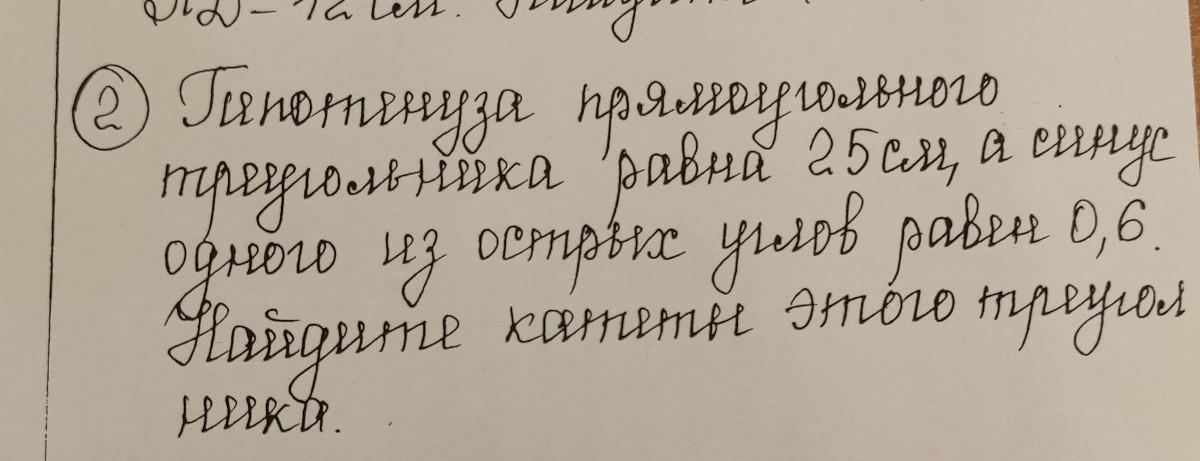 АД = 12 см.
② Гипотенуза прямоугольного
треугольника равна 25 см, а синус
одного из острых углов равен 0,6.
Найдите катеты этого треугол
ника.